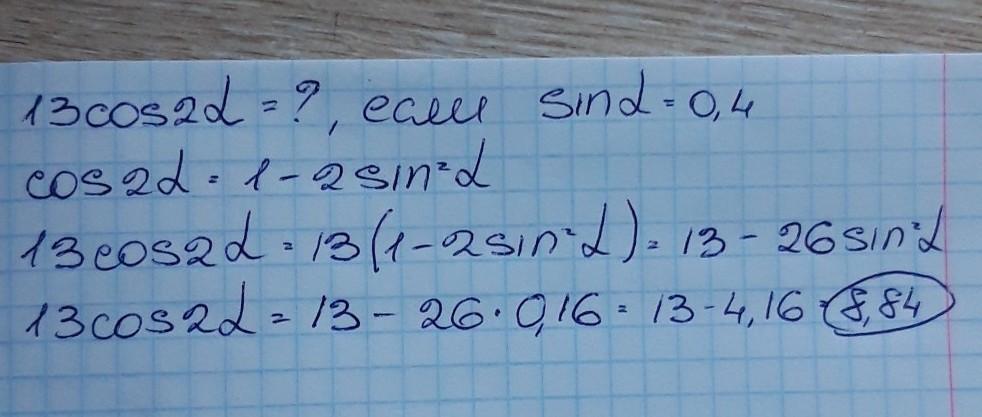 13cos2α = ?, если sinα = 0,4
cos2α = 1 - 2sin²α
13cos2α = 13(1 - 2sin²α) = 13 - 26sin²α
13cos2α = 13 - 26·0,16 = 13 - 4,16 = 8,84